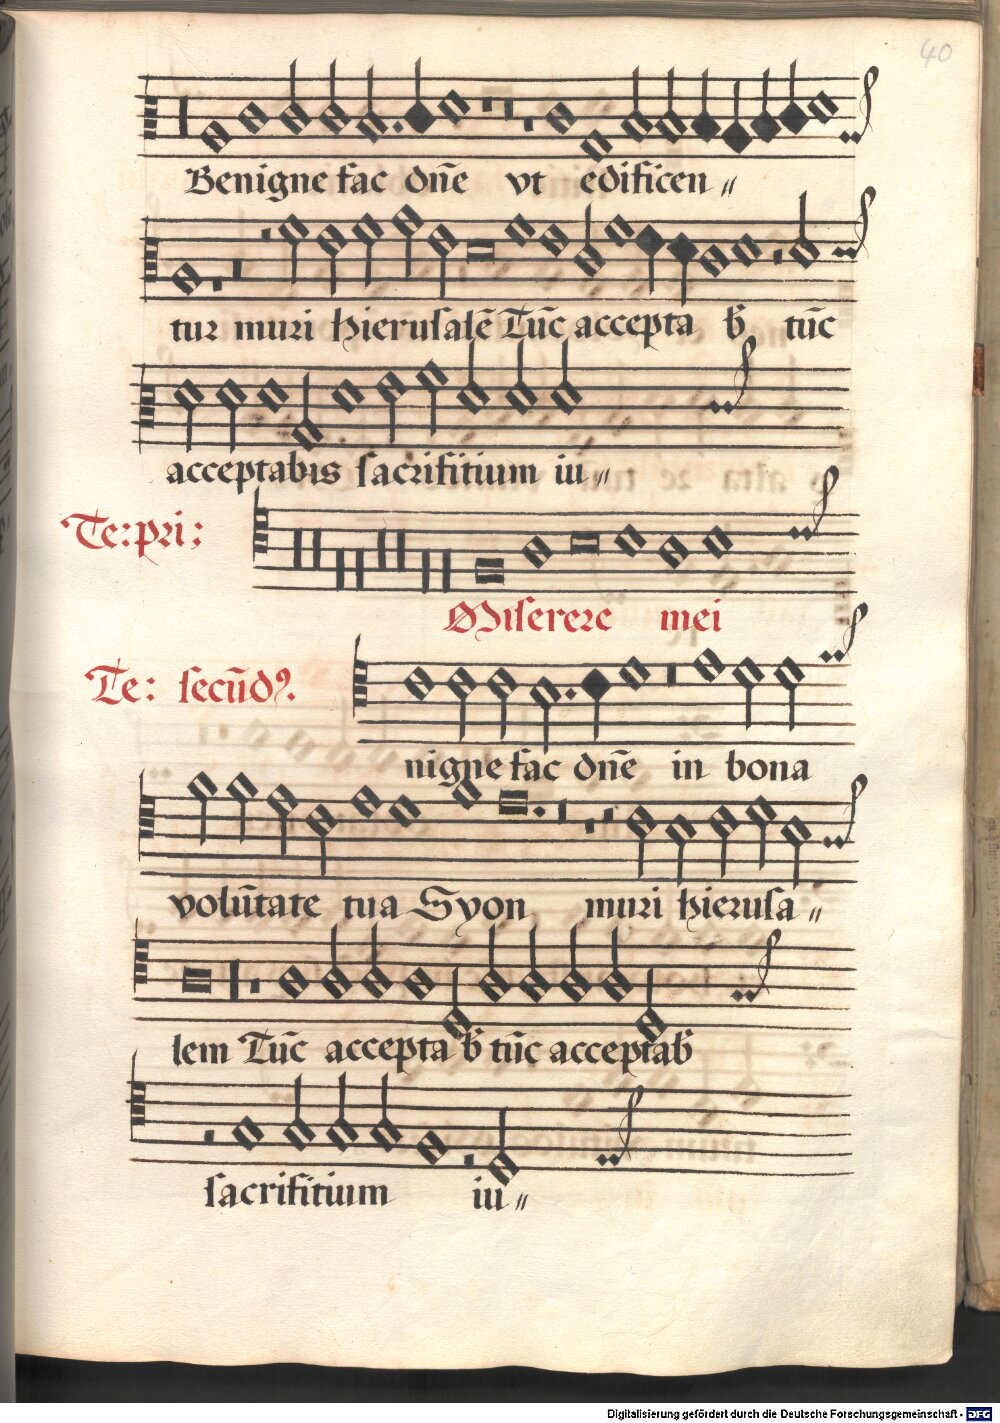 40
Benigne fac dn̄e vt edificen〃
tur muri hieruſalē Tūc accepta b̄ tūc
acceptabis ſacrifitium iu〃
Te: pri:
Miſerere mei
Te: ſecūdꝰ.
nigne fac dn̄e in bona
volūtate tua Syon muri hieruſa〃
lem Tūc accepta b̄ tūc acceptab̄
ſacrifitium iu〃
Digitalisierung gefördert durch die Deutsche Forschungsgemeinschaft - DFG